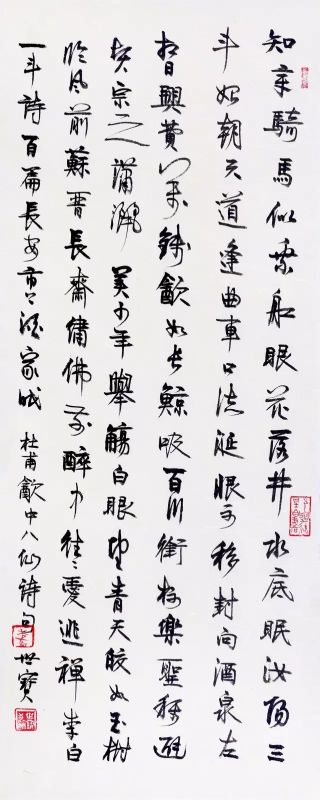 知章騎馬似乘船眼花落井水底眠汝陽三
斗始朝天道逢曲車口流涎恨不移封向酒泉左
相日興費萬錢飲如長鯨吸百川銜杯樂聖稱避
賢宗之瀟灑美少年舉觴白眼望青天皎如玉樹
臨風前蘇晉長齋繡佛前醉中往〻愛逃禪李白
一斗詩百篇長安市上酒家眠 杜甫飲中八仙詩句 世寶